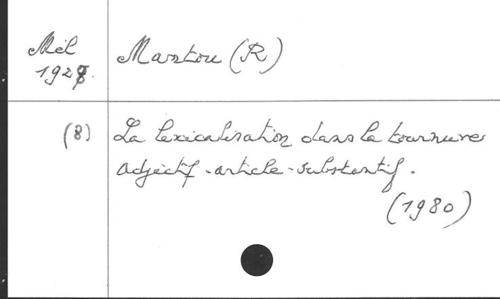 Mél
1927.
Marzlou (R)
(8) La lexicalisation dans la tournures
adjectif-article-substantif.
(1980)